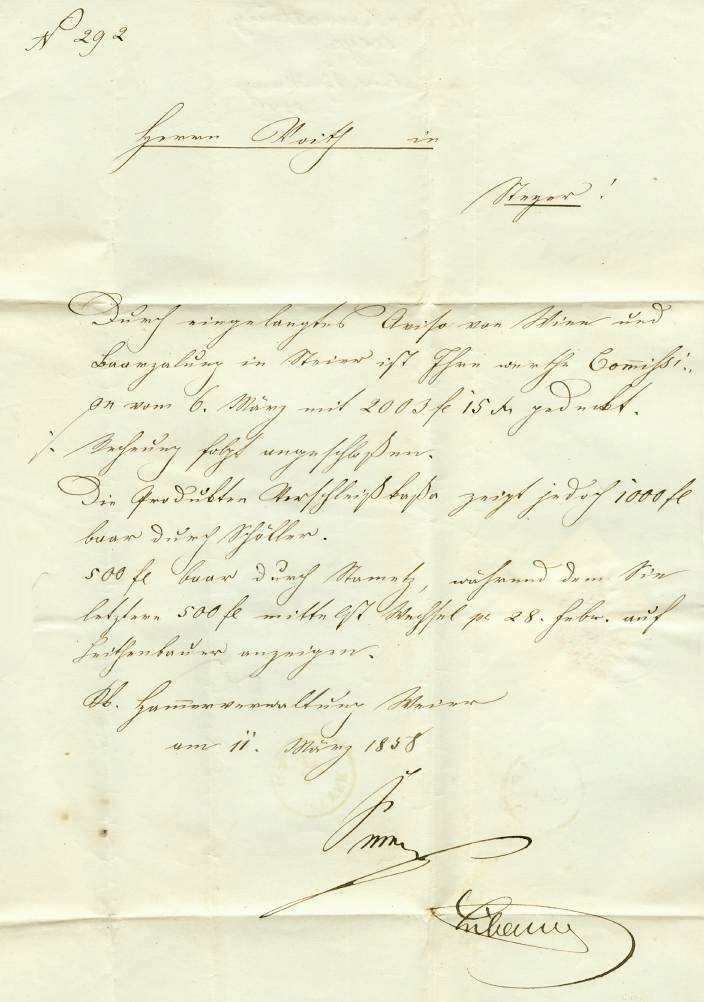 N 292
Herrn Voith in
Steyer!
Durch eingelangtes Aviso von Wien und
Baarzalung in Steier ist Ihre werthe Commißi:
on vom 6. März mit 2003 fl 15 kr gedeckt.
/. Rechnung folgt angeschloßen.
Die Produkten Verschleißkaßa zeigt jedoch 1000 fl
baar durch Schöller.
500 fl baar durch Stametz, während dem Sie
letztere 500 fl mittelst Wechsel pr 28. Febr. auf
Leithenbauer anzeigen.
Kk. Hammerverwaltung Weier
am 11. März 1858